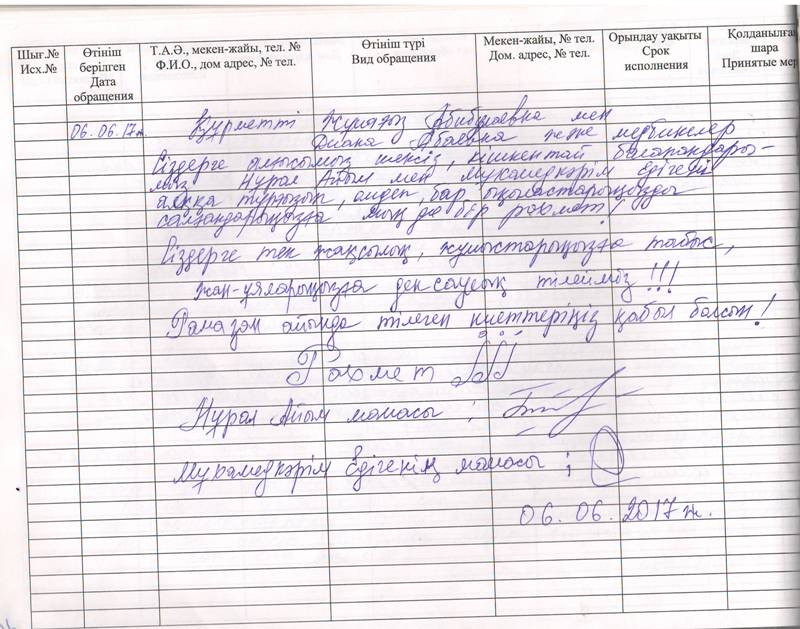 Шығ.№
Исх.№
Өтініш
берілген
Дата
обращения
Т.А.Ә., мекен-жайы, тел. №
Ф.И.О., дом адрес, № тел.
Өтініш түрі
Вид обращения
Мекен-жайы, № тел.
Дом. адрес, № тел.
Орындау уақыты
Срок
исполнения
Қолданылға
шара
Принятые мер
06.06.17ж. Құрметті Абибуллаевна мен
Диана Абаевна және медбикелер
Сіздерге алғысымыз шексіз, кішкентай балапандары-
мыз Нұрай Айым мен Мұхамедкәрім Едігені
аяққа тұрғызып, емдеп, бар ықыластарыңызды
салғандарыңызға мың да бір рахмет!
Сіздерге тек жақсылық, жұмыстарыңызға табыс,
жан-ұяларыңызға денсаулық тілейміз!!!
Рамазан айында тілеген ниеттеріңіз қабыл болсын!
Рахмет!!!
Нұрай Айым мамасы:
Мұхамедкәрім Едігенің мамасы:
06.06.2017ж.